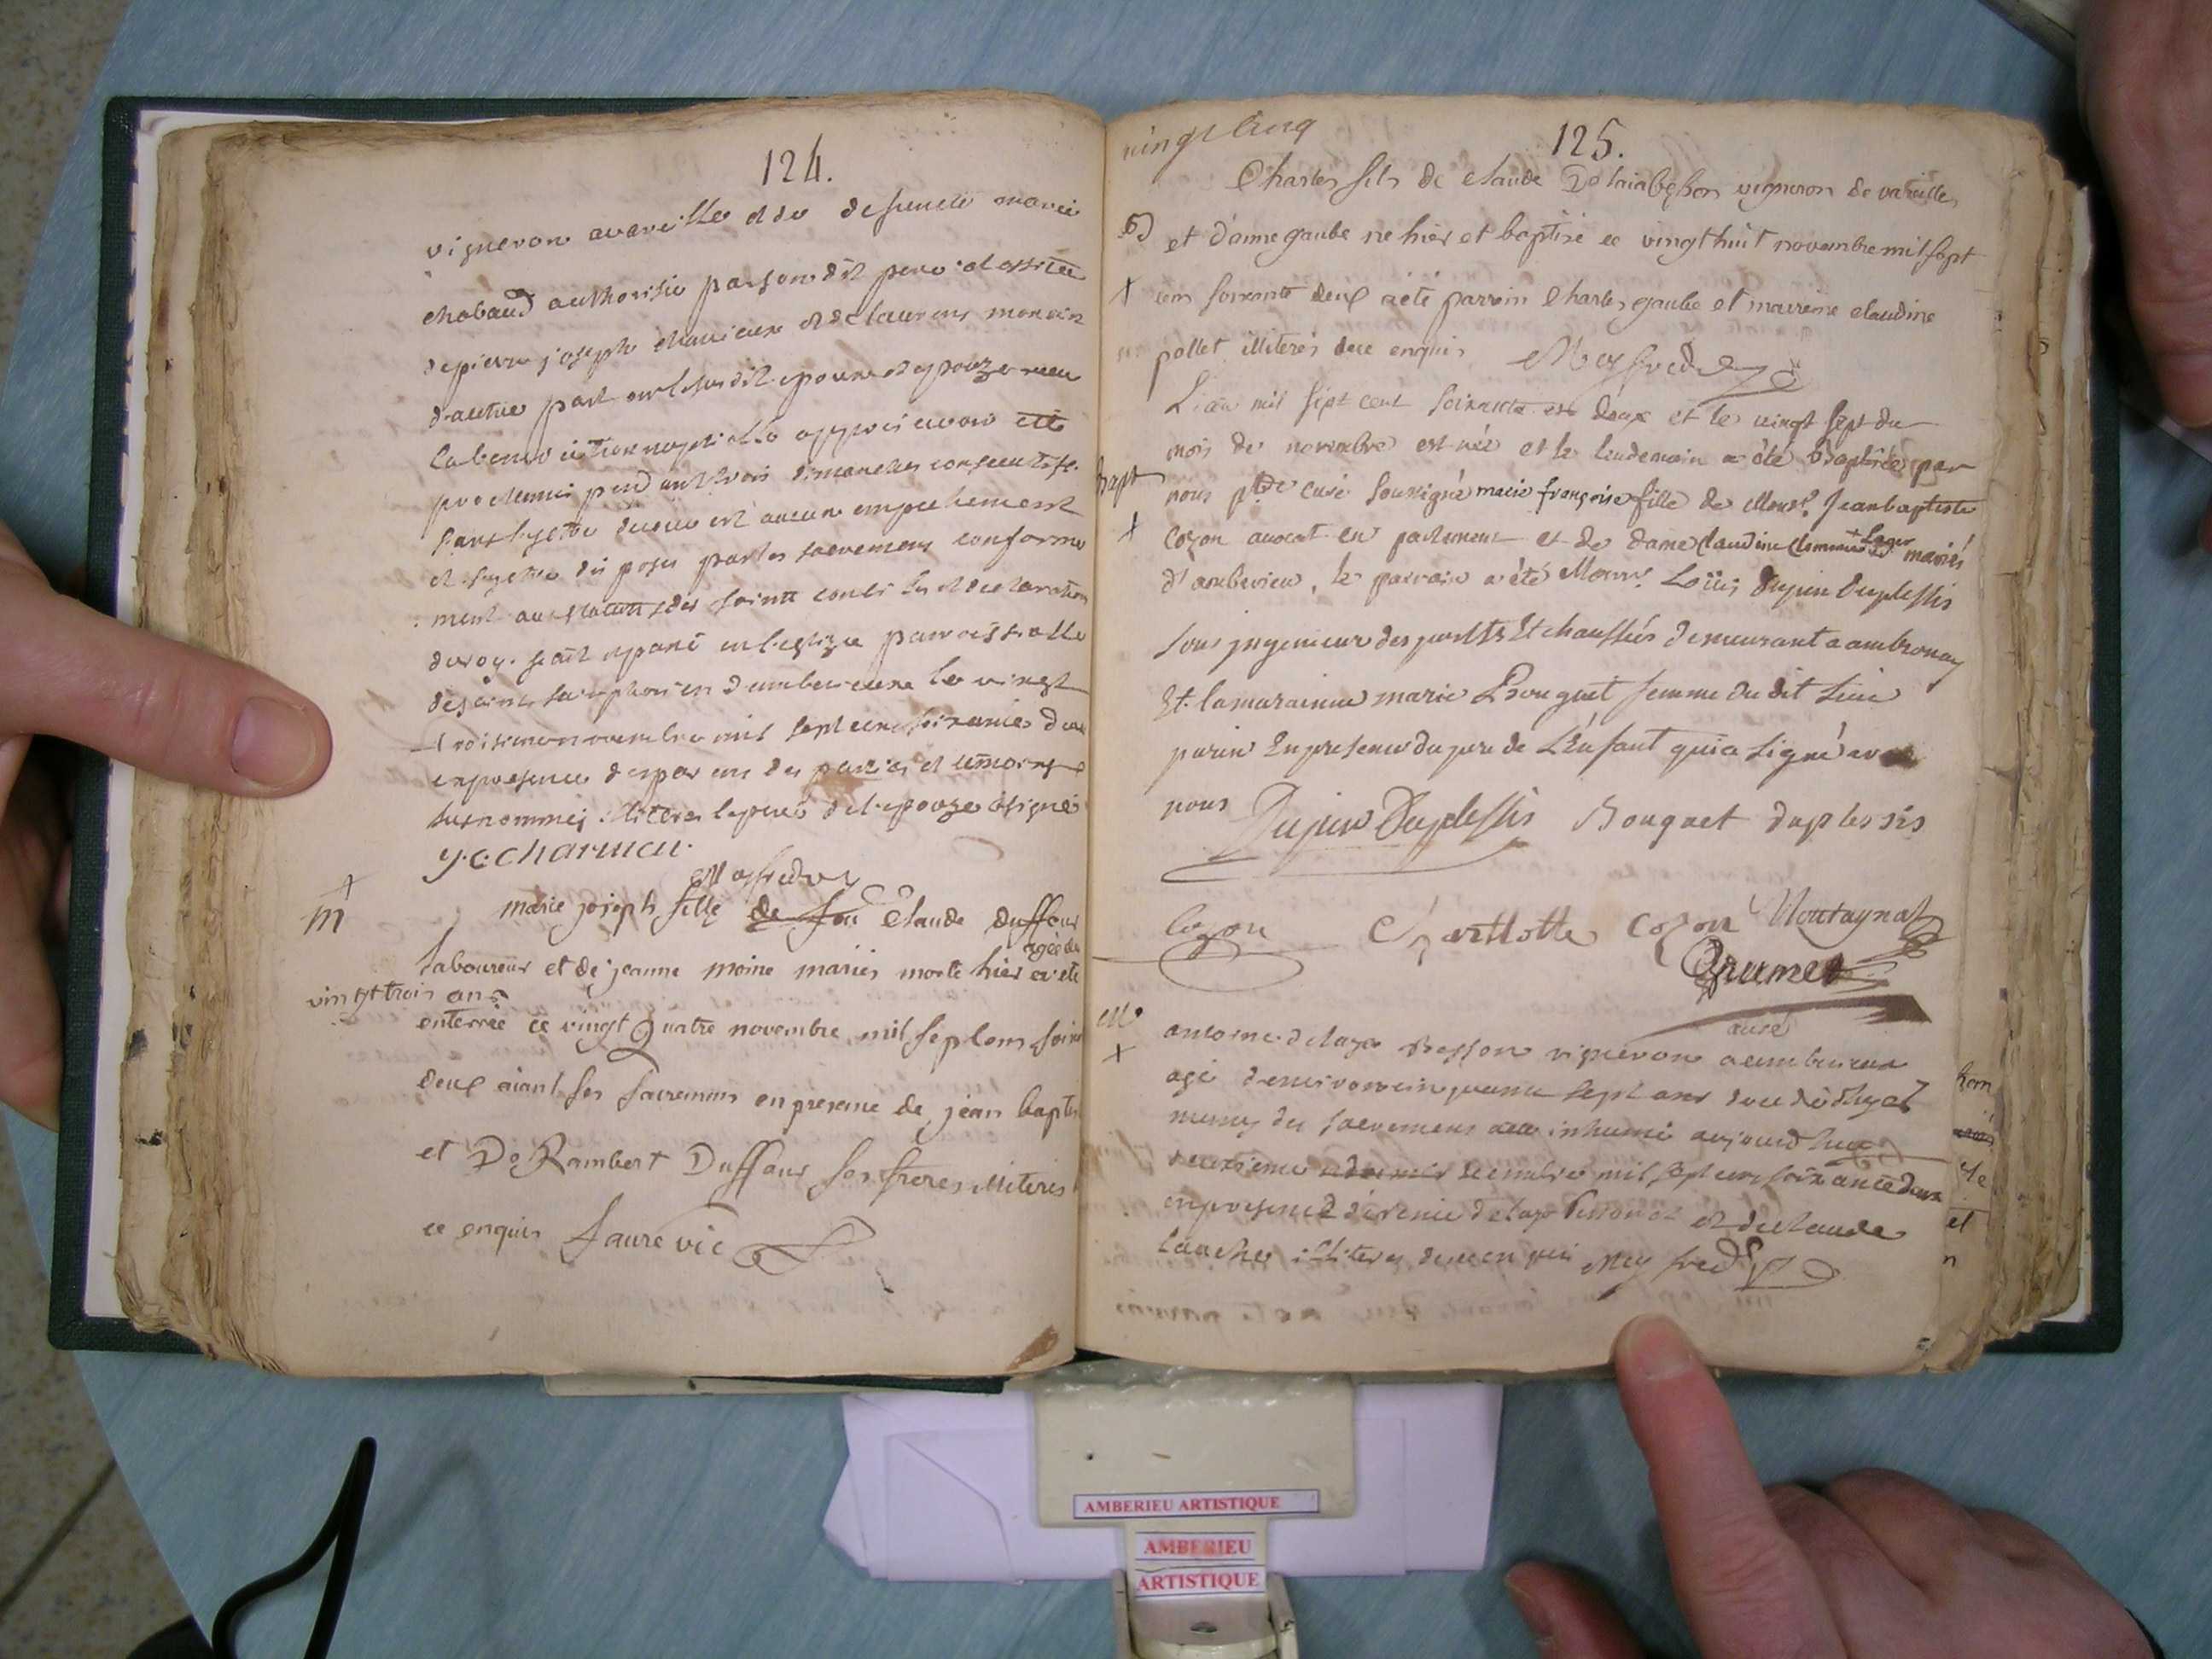 124.
vigneron avareille et de defuncte marie
chabaud authorisée par son dit pere et assistée
de pierre joseph et de laurens monin
d'autre part ont les dit epoux et epouze receu
la benediction nuptialle apprès avoir été
proclamés pendant trois dimanches consecutifs
sans qu'etre decouvert aucun empechement
et s'y etre disposés par les sacremens conforme
ment aux statuts des saints conciles et declaration
du roy. fait et passé en l'eglize paroissialle
de saint simphorien d'amberieux le vingt
troisieme novembre mil sept cens soixante deux
en presence des parens des parties et temoins
susnommés illiteres le pere de l'epouze a signé
y.c. charueu.
Maffredoz
m
+
marie joseph fille de feu Claude Duffour
laboureur et de jeanne moine mariés morte hier agée de
vingt trois ans
et été
enterrée ce vingt quatre novembre mil sept cens soix
deux aiant ses sacremens en presence de jean baptis
et De Rambert Duffour ses freres illiterés
ce enquis faure vic
vingt cinq
125.
Charles fils de claude Delaiabesson vigneron de vareilles
B
et d'anne gaube né hier et baptisé ce vingt huit novembre mil sept
+
cens soixante deux a été parrain Charles gaube et marreine claudine
pollet illiterés de ce enquis Maffredoz
L'an mil sept cent soixante et deux et le vingt sept du
mois de novembre est née et le lendemain a été baptisée par
bapt
nous ptre curé soussigné marie françoise fille de Monsr. Jean baptiste
+
Cozon avocat en parlement et de dame Claudine Clemence Leger mariés
d'amberieu, le parrain a été Monsr. Loüis Dujin Duplessis
sous jngenieur des ponts Et chaussées demeurant a ambronay
Et la maraine marie Bouquet femme du dit sieur
parin En presence du pere de L'Enfant qui a signé avec
nous Dujin Duplessis Bouquet duplessis
Cozon Charllotte Cozon Montagnat
Grumet
curé
M
+
antoine delaya Besson vigneron a amberieux
agé d'environ cinquante sept ans decedé hyer
muny des sacremens a eté inhumé aujourd'huy
deuxieme decembre mil sept cens soixante deux
en presence d'etienne delaya Besson et de claude
illiteres de ce enquis Maffredoz
et
n
AMBERIEU ARTISTIQUE
AMBERIEU
ARTISTIQUE